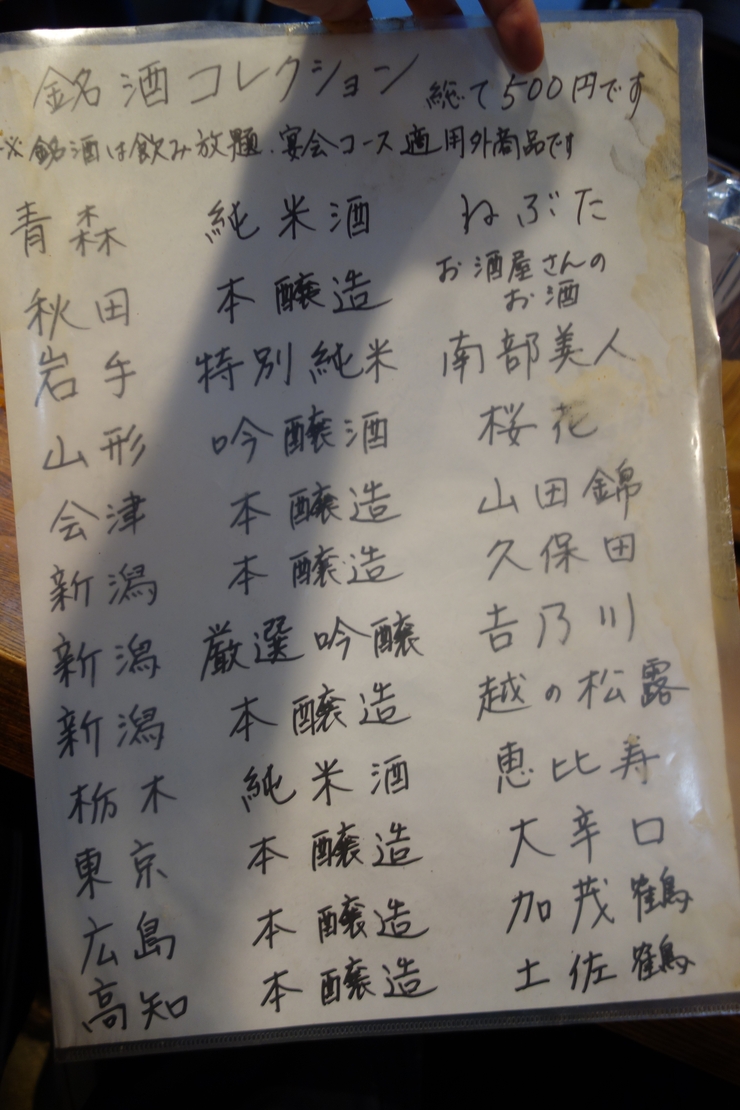 銘酒コレクション 総て500円です
※銘酒は飲み放題.宴会コース適用外商品です
青森 純米酒 ねぶた
秋田 本醸造 お酒屋さんの
お酒
岩手 特別純米 南部美人
山形 吟醸酒 桜花
会津 本醸造 山田錦
新潟 本醸造 久保田
新潟 厳選吟醸 吉乃川
新潟 本醸造 越の松露
栃木 純米酒 恵比寿
東京 本醸造 大辛口
広島 本醸造 加茂鶴
高知 本醸造 土佐鶴